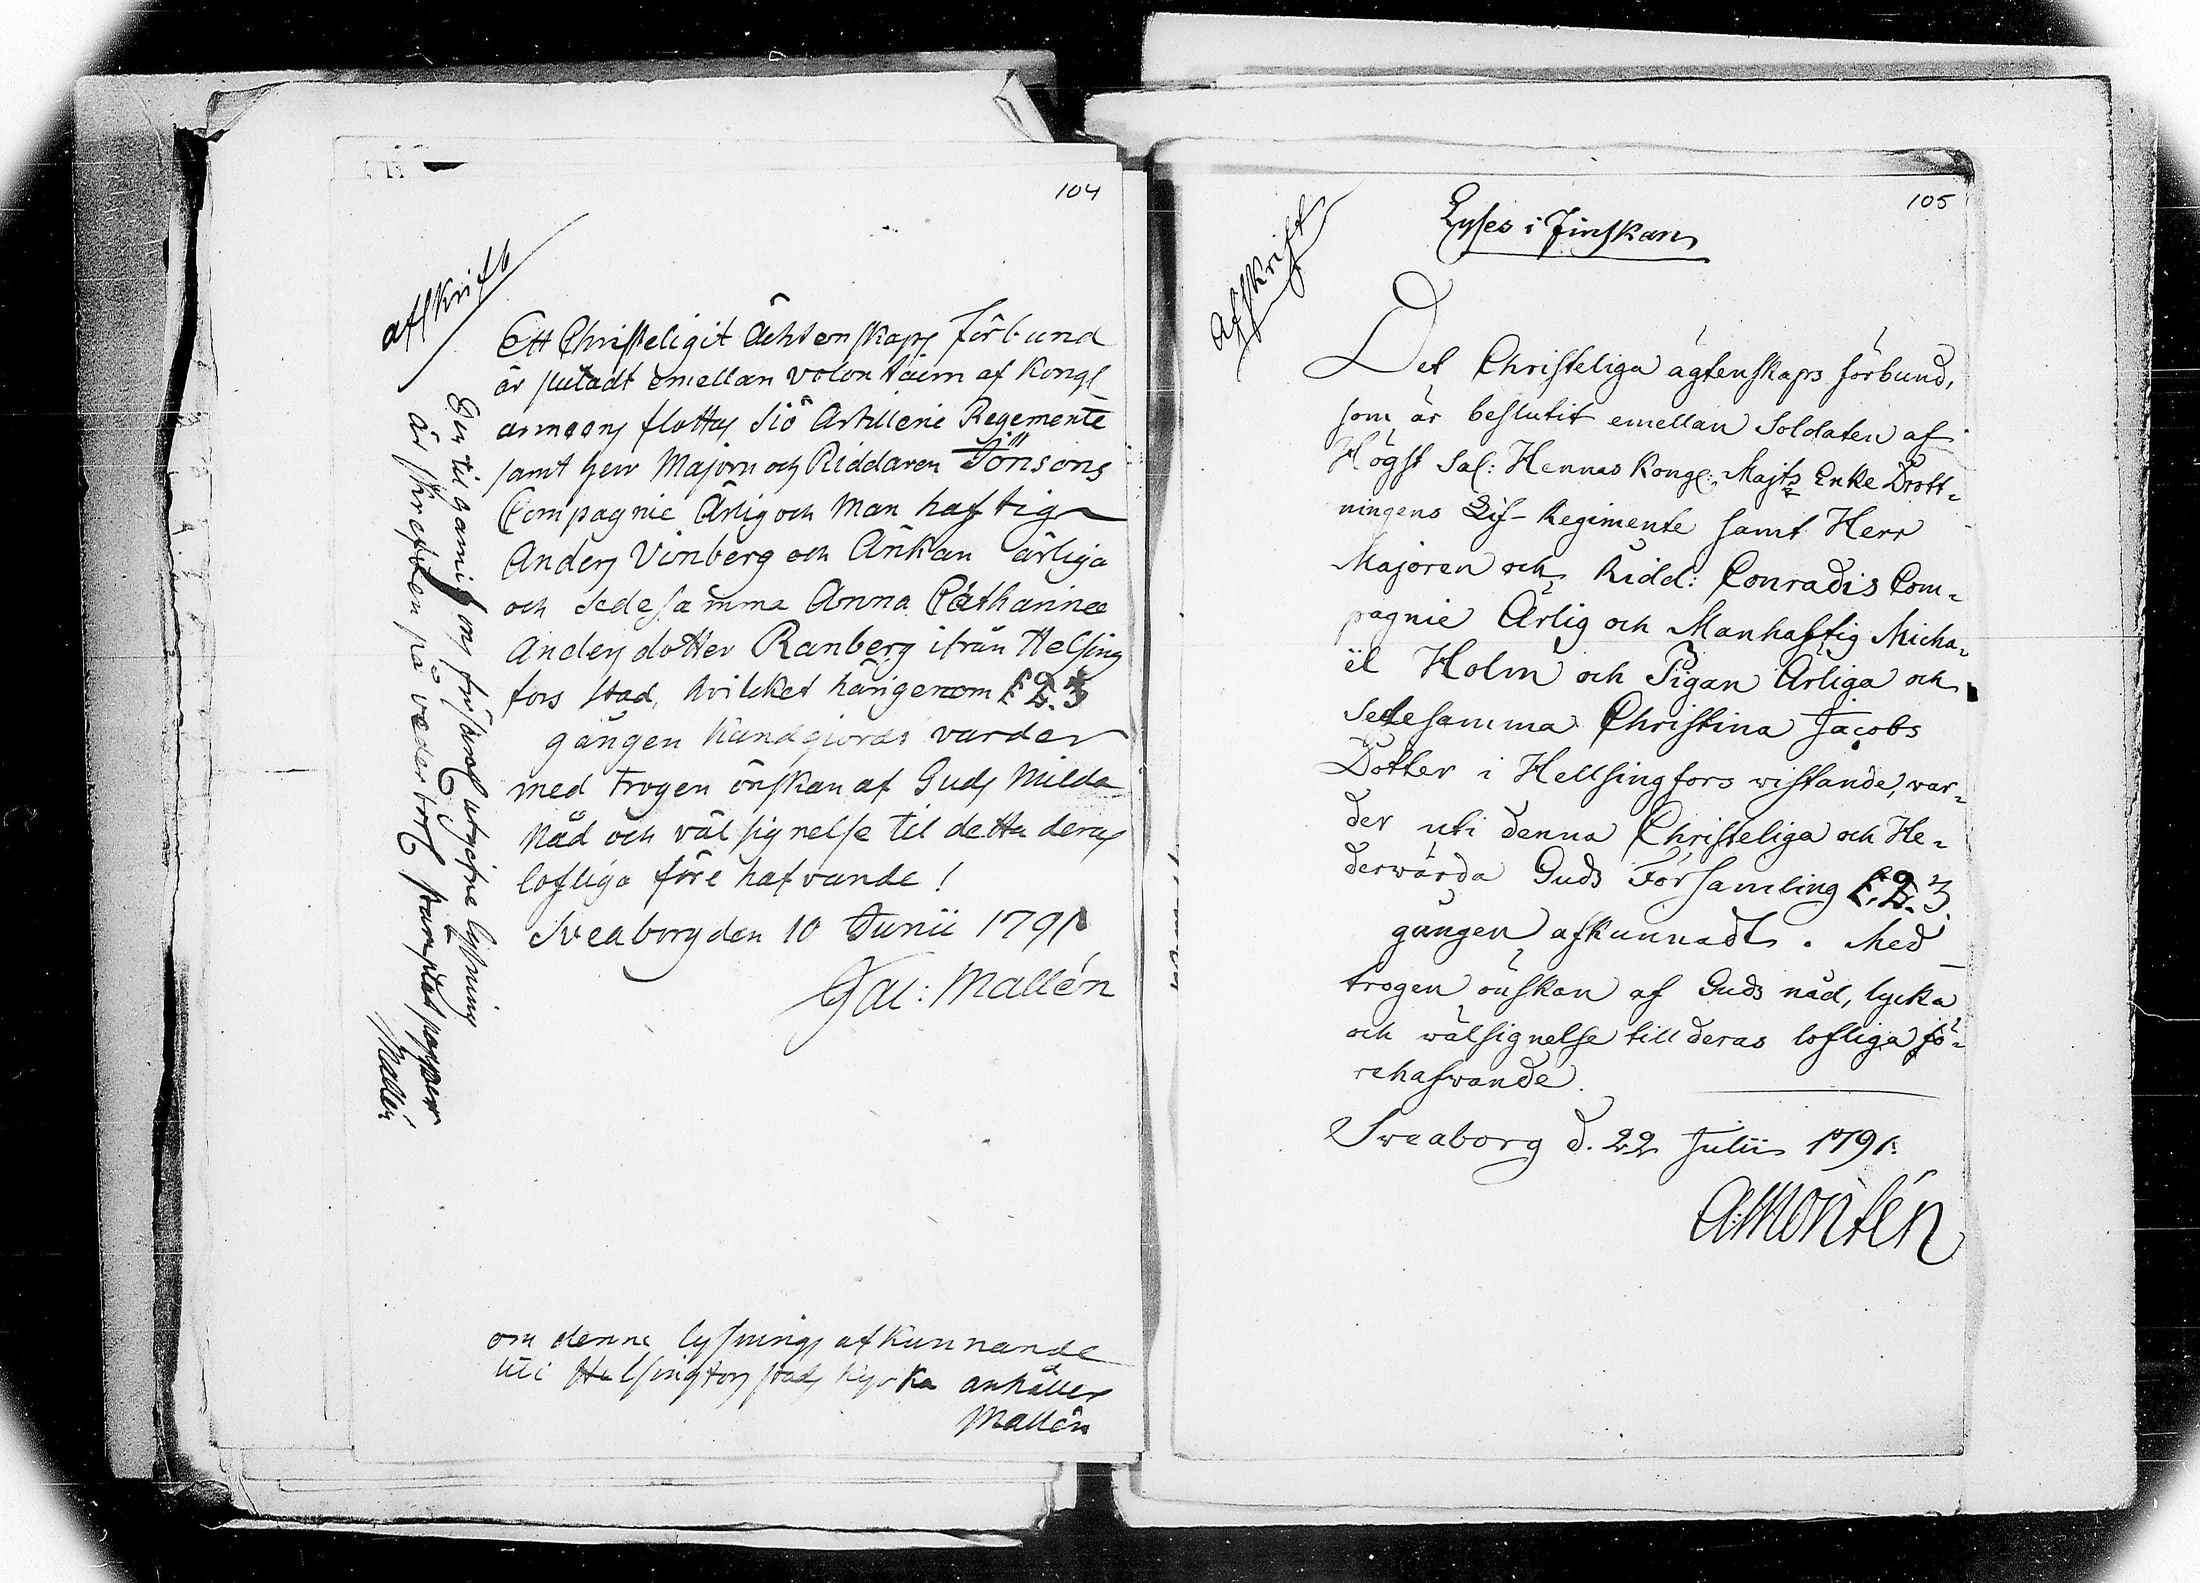 104
afskrift
Ett Christeligit Ächtenskaps förbund
är slutadt emellan volontairn af Kongl
armeens flottas Siö Artillerie Regemente
samt herr Majorn och Riddaren Jönsons
Compagnie Ärlig och Manhaftig
Anders Vinberg och Änkan ärliga
och Sedesamma Anna Catharina
Andersdotter Ranberg ifrån Helsing
fors stad, hvilket härigenom 1. 2. 3
gången kundgiordt varder
med trogen önskan af Guds Milda
Nåd och välsignelse til detta deras
lofliga förehafvande!
Sveaborg den 10 Junii 1791
Gal: Mallén
om denna lysnings afkunnande
uti Helsingfors stads kyrka anhålles
Mallén
är skrefven på vederbörl stämplat papper
Mallén
105
afskrift
Lyses i Finskan
Det Christeliga ägtenskaps förbund,
som är beslutit emellan Soldaten af
Högst Sal: Hennas Kongl: Majts Enke Drott-
ningens Lif-Regimente samt Herr
Majoren och Ridd: Conradis Com-
pagnie Ärlig och Manhaftig Micha-
ël Holm och Pigan Ärliga och
Sedesamma Christina Jacobs
Dotter i Hellsingfors wistande, war-
der uti denna Christeliga och He-
derwärda Guds Församling 1. 2. 3.
gången afkunnadt. Med
trogen önskan af Guds nåd, lycka
och wälsignelse till deras lofliga fö-
rehafwande.
Sweaborg d. 22 Julii 1791.
A:Montén